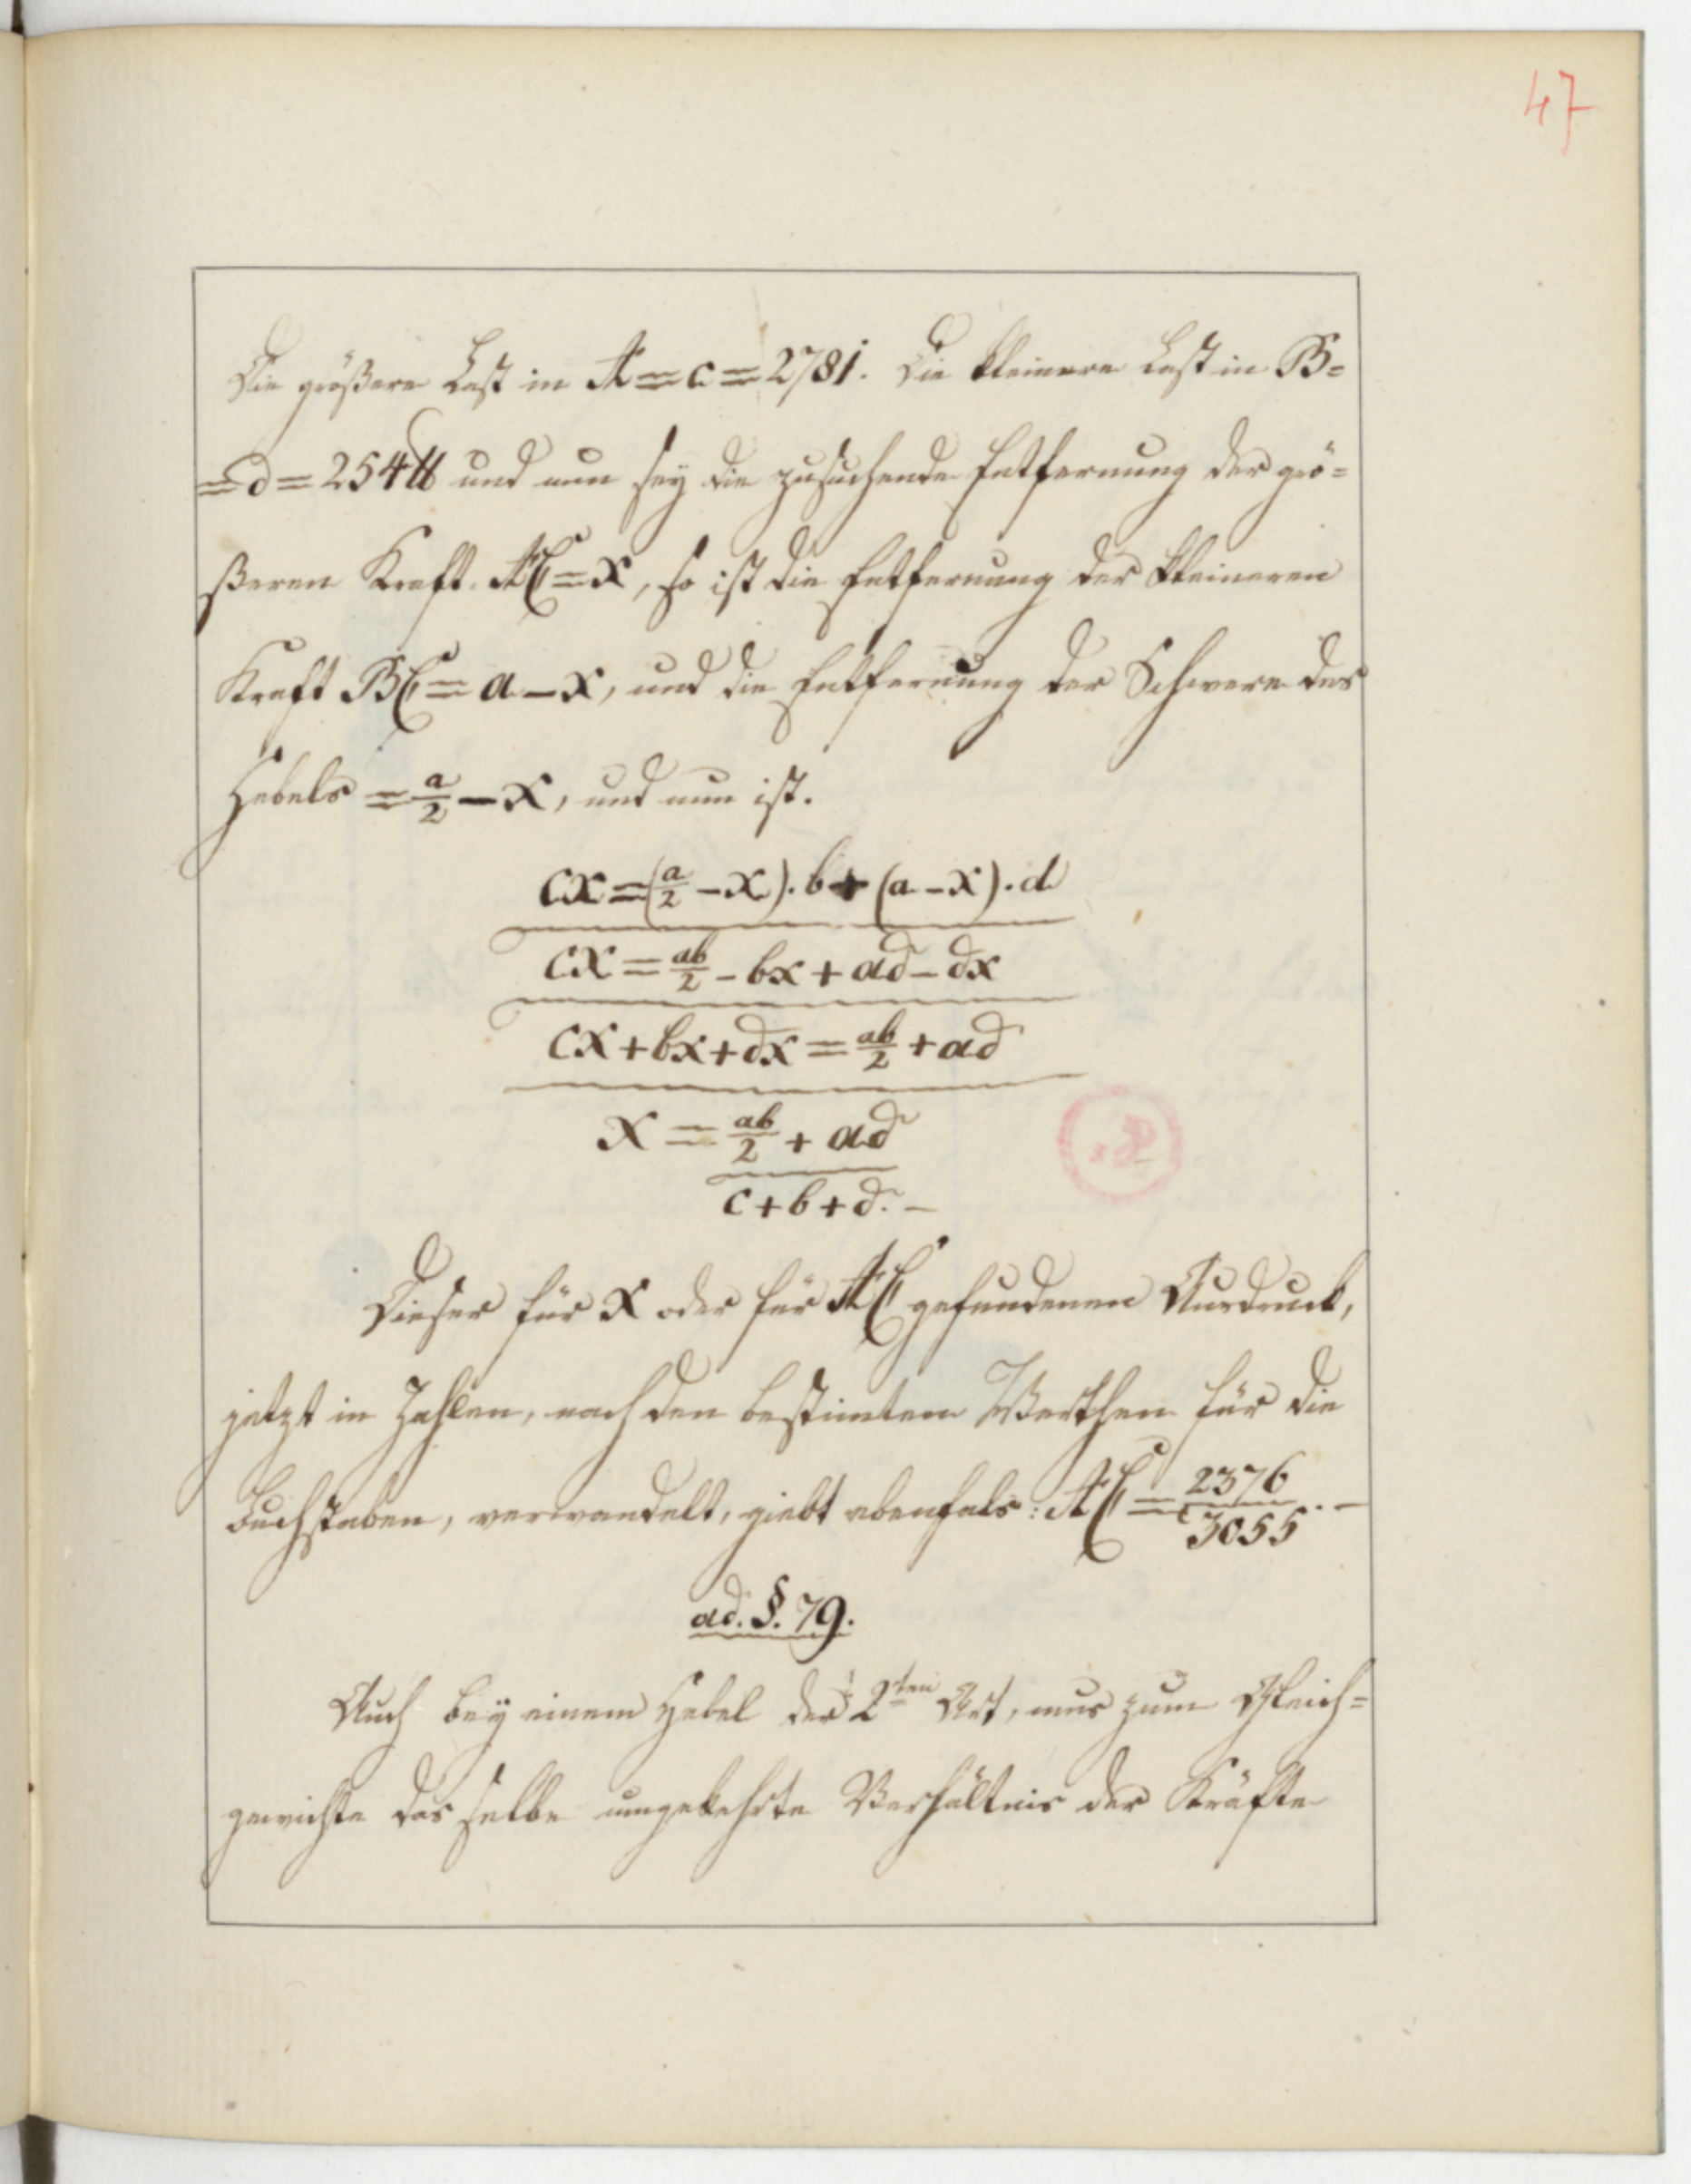 47
Die größere Last in A = c = 2781. Die kleinere Last in B =
= d = 254 ℔ und nun sey die zusuchende Entfernung der grö=
ßeren Kraft AC = x, so ist die Entfernung der kleineren
Kraft BC = a – x, und die Entfernung der Schwere des
Hebels = a/2 – x, und nun ist.
cx = (a/2 – x). b + (a – x). d
cx = ab/2 – bx + ad – dx
cx + bx + dx = ab/2 + ad
x = ab/2 + ad
c + b + d. –
Dieser für x oder für AC gefundenen Ausdruck,
jetzt in Zahlen, nach den bestimten Werthen für die
Buchstaben, verwandelt, giebt ebenfals: AC = 2376/3055. –
ad. §. 79.
Auch bey einem Hebel der 2ten Art, mus zum Gleich=
gewichte das selbe umgekehrte Verhältnis der Kräfte